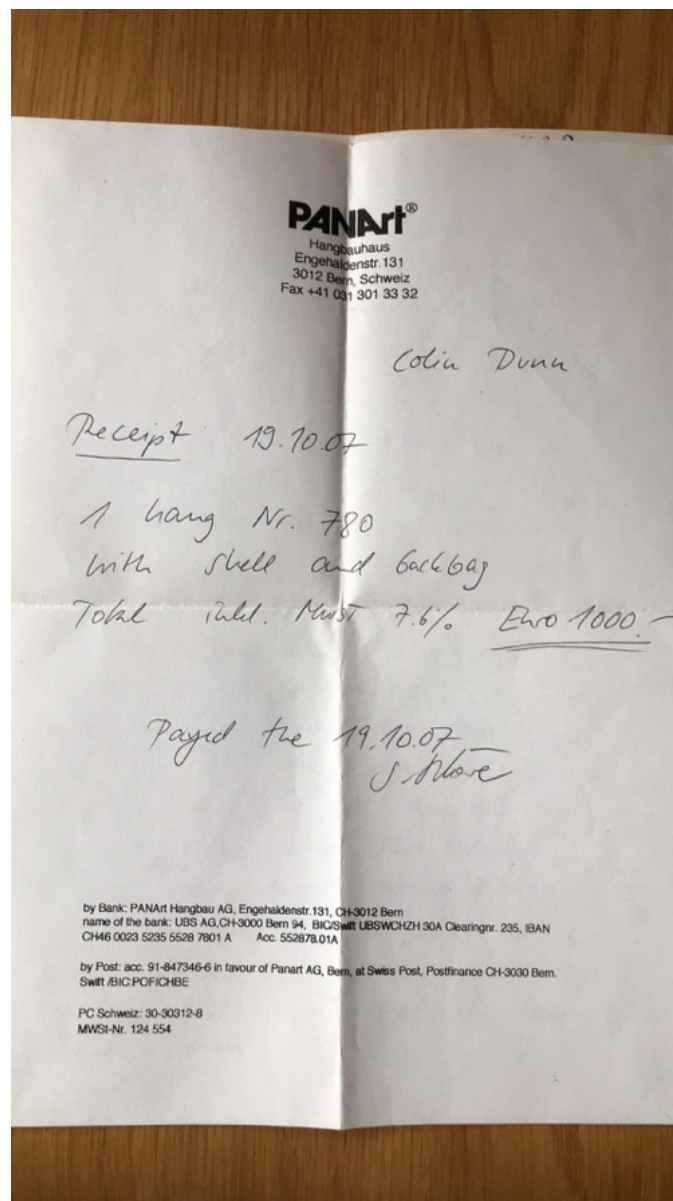 PANArt®
Hangbauhaus
Engehaldenstr.131
3012 Bern, Schweiz
Fax +41 031 301 33 32
Colin Dunn
Receipt 19.10.07
1 hang Nr. 780
with shell and backbag
Total inkl. MwST 7.6% Euro 1000.–
Payed the 19.10.07
by Bank: PANArt Hangbau AG, Engehaldenstr.131, CH-3012 Bern
name of the bank: UBS AG,CH-3000 Bern 94, BIC/Swift UBSWCHZH 30A Clearingnr. 235, IBAN
CH46 0023 5235 5528 7801 A Acc. 552878.01A
by Post: acc. 91-847346-6 in favour of Panart AG, Bern, at Swiss Post, Postfinance CH-3030 Bern.
Swift /BIC:POFICHBE
PC Schweiz: 30-30312-8
MWSt-Nr. 124 554